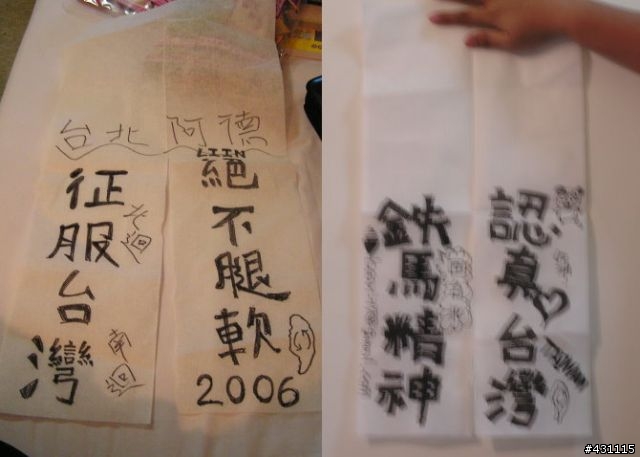 台北阿德
LIIN
征服台灣
北迴
南迴
絕不腿軟
2006
鉄馬精神
認真台灣
TAIWAN
#431115